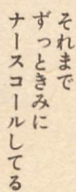 それまで
ずっときみに
ナースコールしてる